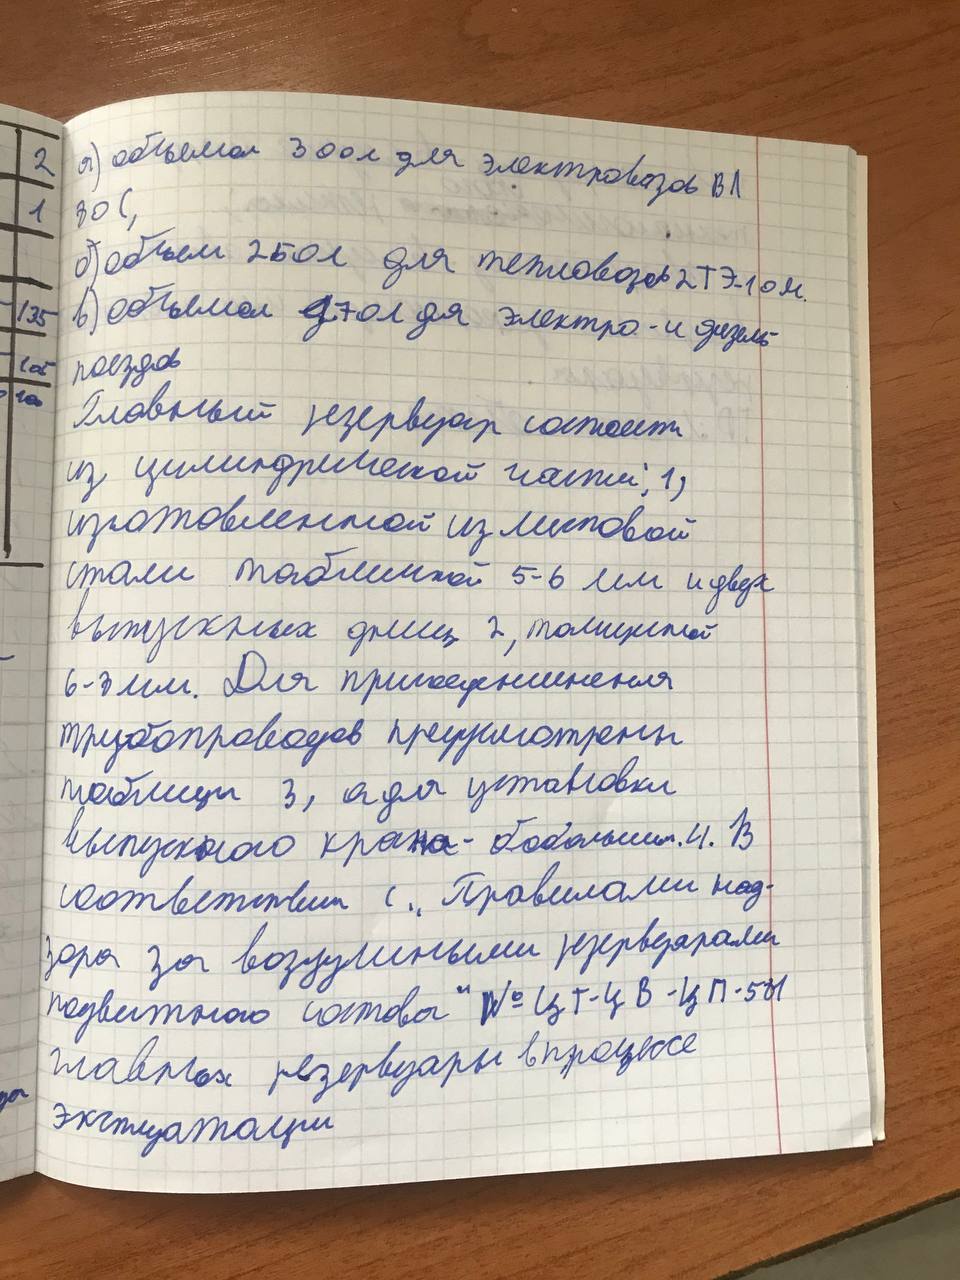 2
1
135
105
100
а) объемом 300л для электровозов ВЛ
80С,
б) объем 250л для тепловозов 2ТЭ-10м.
в) объемом 170л дя электро-и дизель
поездов
Главный резервуар состоит
из цилиндрической части, 1,
изготовленной из листовой
стали таблиной 5-6 мм и двух
выпускных днищ 2, толщиной
6-8 мм. Для присоединенеия
трубопроводов предусмотрены
таблицы 3, а для установки
выпускного крана- бобольшим.4. В
соответствии с „Правилами над-
зора за воздушными резервуарами
подвижного состава" № ЦТ-ЦВ-ЦП-581
главных резервуары в процессе
эксплуатации